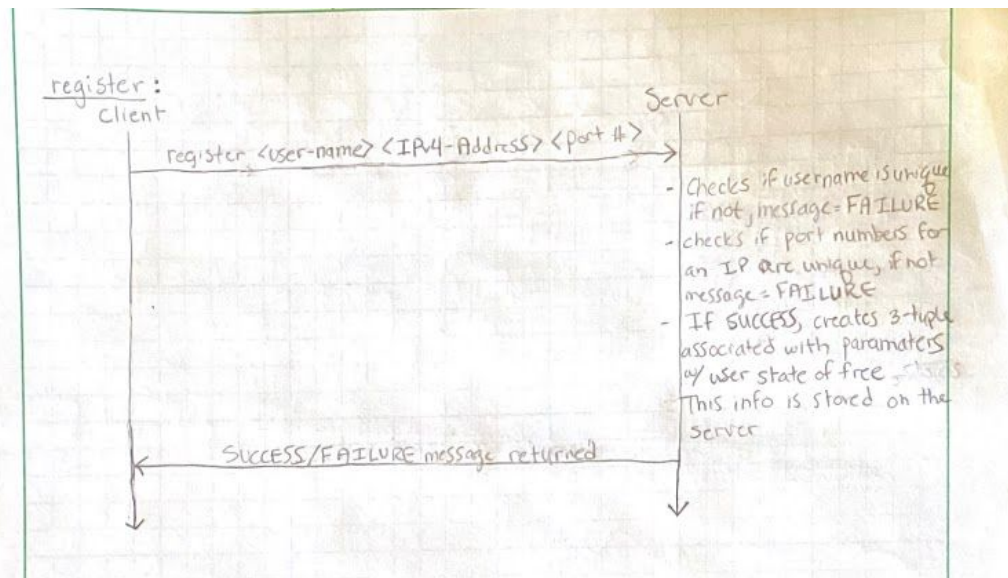 register:
Client
Server
register <user-name> <IPv4-Address> <port #>
- Checks if username is unique
if not, message = FAILURE
- checks if port numbers for
an IP are unique, if not
message = FAILURE
- If SUCCESS, creates 3-tuple
associated with paramaters
w/ user state of free
This info is stored on the
server
SUCCESS/FAILURE message returned